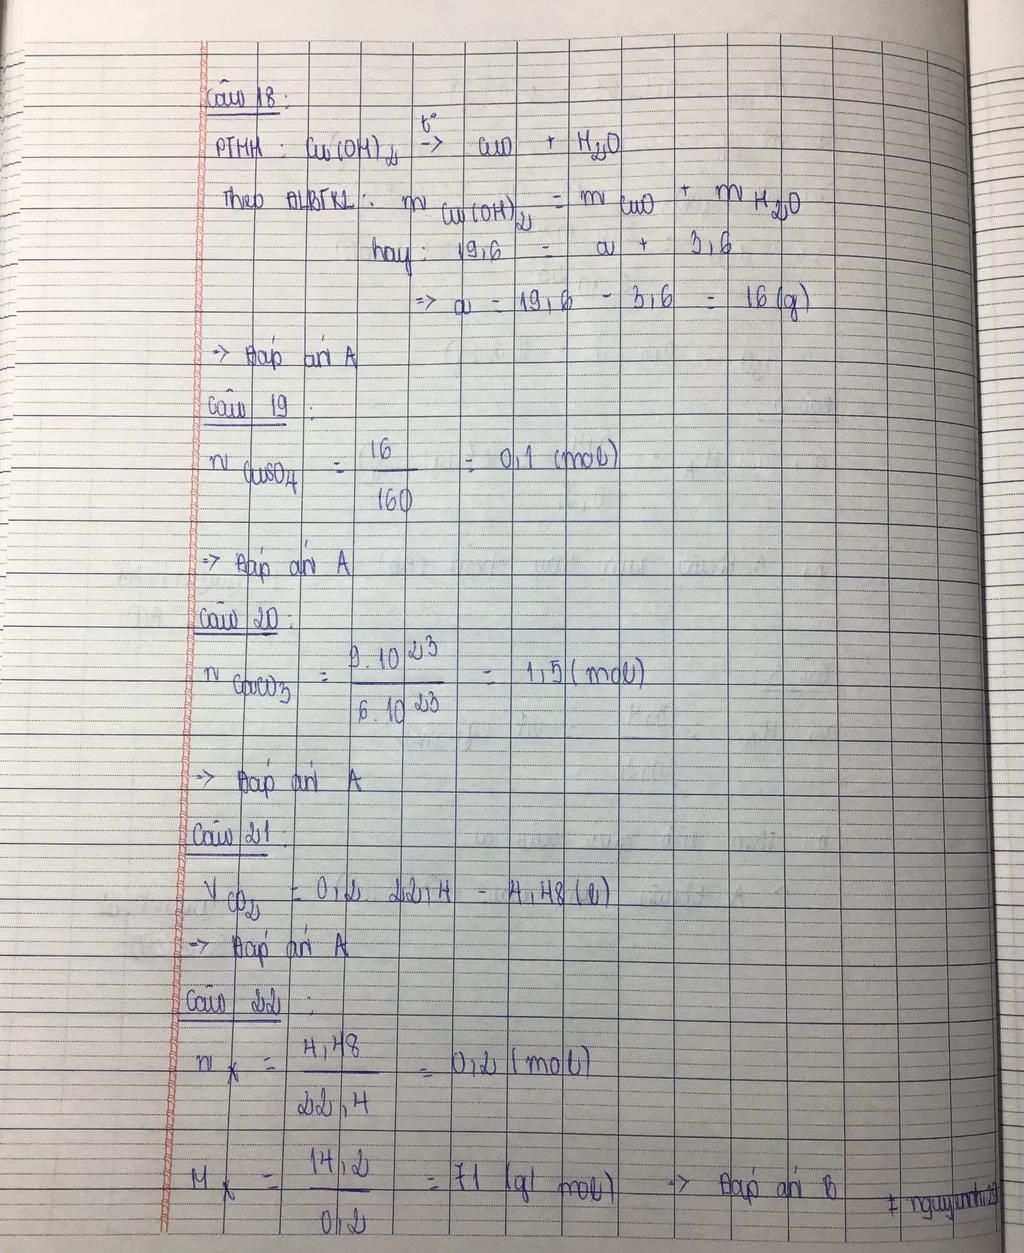 Câu 18:
PTHH: Cu(OH)2 t°→ CuO + H2O
Theo ĐLBTKL: m Cu(OH)2 = m CuO + m H2O
hay: 19,6 = a + 3,6
=> a = 19,6 - 3,6 = 16 (g)
-> Đáp án A
Câu 19:
n CuSO4 = 16/160 = 0,1 (mol)
-> Đáp án A
Câu 20:
n CaCO3 = 9.10^23/6.10^23 = 1,5 (mol)
-> Đáp án A
Câu 21:
V CO2 = 0,2 22,4 = 4,48 (l)
-> Đáp án A
Câu 22:
n X = 4,48/22,4 = 0,2 (mol)
M X = 14,2/0,2 = 71 (g/mol) -> Đáp án B